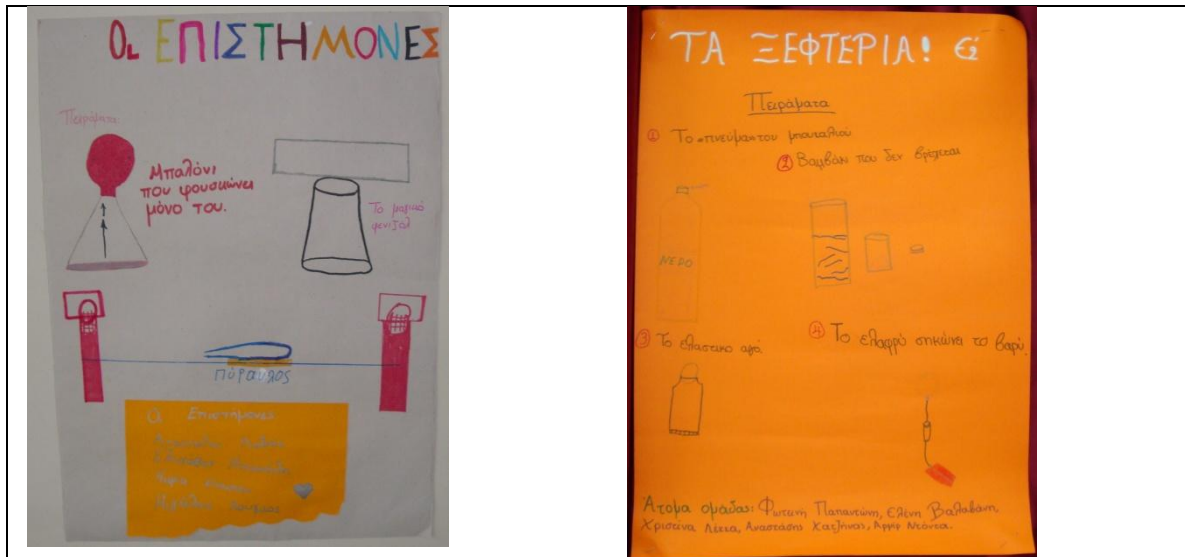 Οι ΕΠΙΣΤΗΜΟΝΕΣ
Πειράματα
Μπαλόνι
που φουσκώνει
μόνο του.
Το μαγικό
πύραυλος
Οι Επιστήμονες
ΤΑ ΞΕΦΤΕΡΙΑ! Ε2'
Πειράματα
① Το πνεύμα του μπουκαλιού
② Βαμβάκι που δεν βρέχεται
ΝΕΡΟ
③ Το ελαστικο αυγό
④ Το ελαφρύ σηκώνει το βαρύ.
Άτομα ομάδας: Φωτεινή Παπαντώνη, Ελένη Βαλαβάνη,
Χριστίνα Λέκκα, Αναστάσης Χατζήνας,